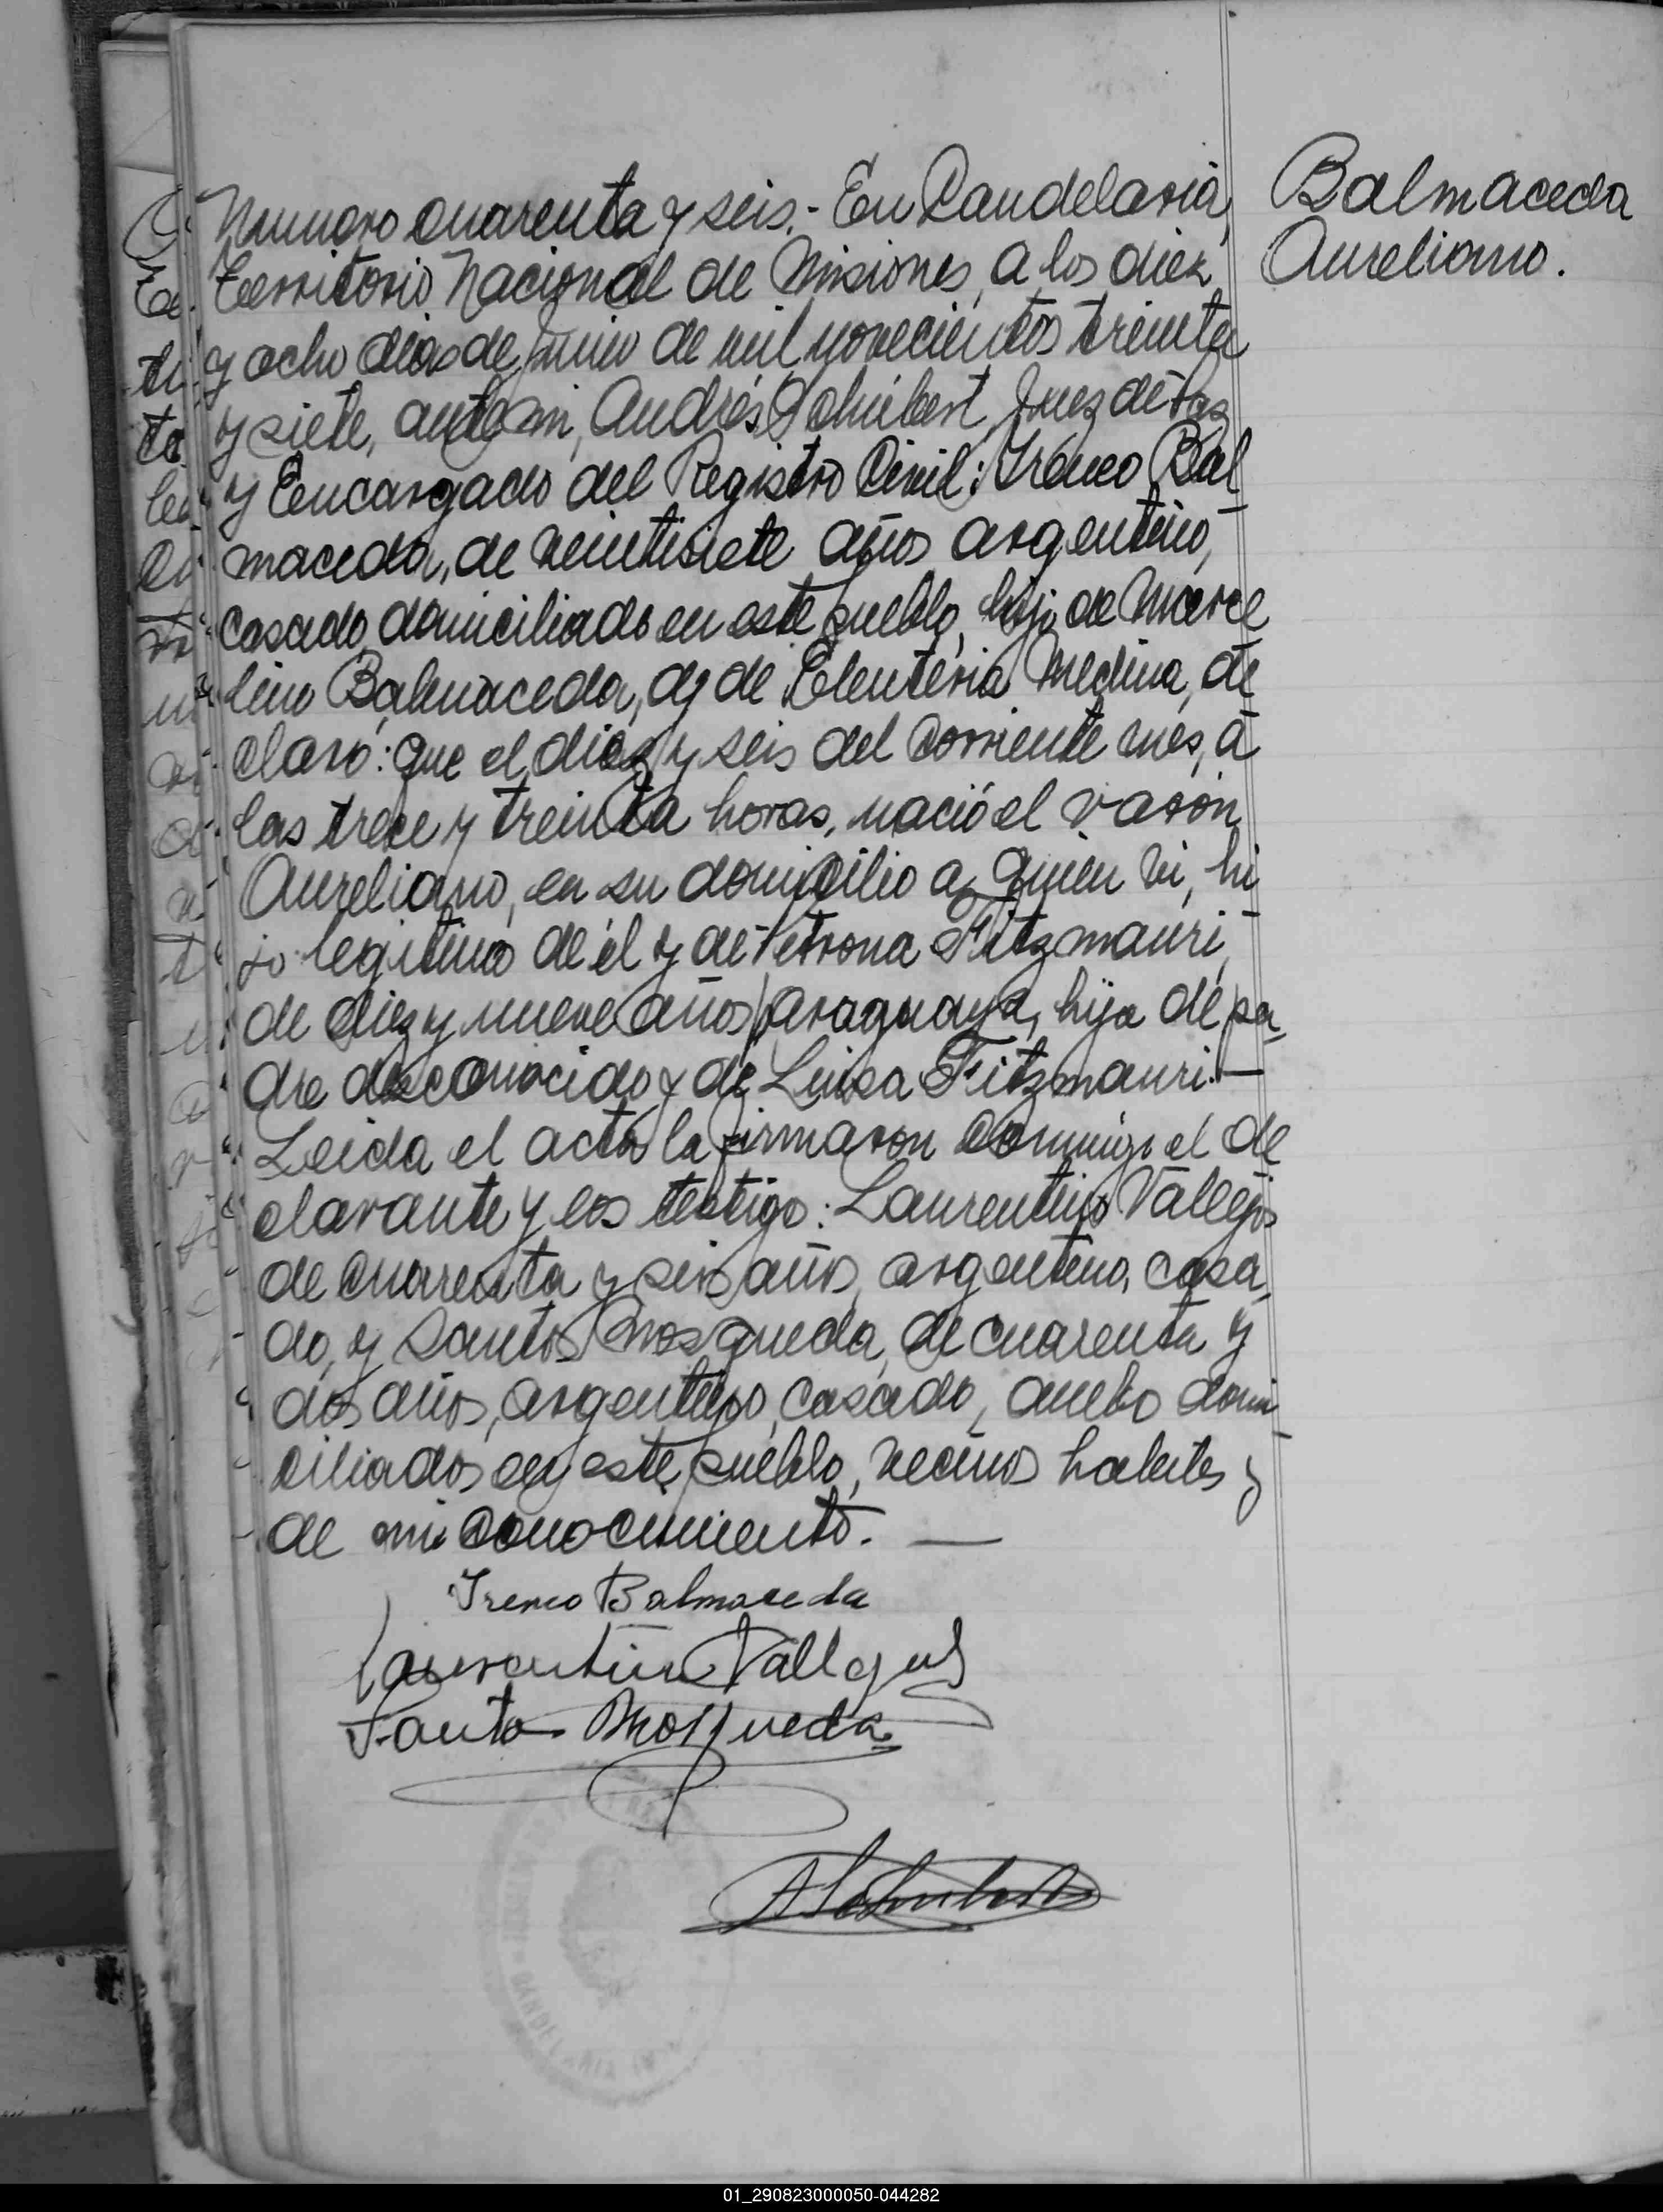 Balmaceda
Aureliano.
Numero cuarenta y seis.- En Candelaria,
Territorio Nacional de Misiones, a los diez
y ocho dias de Junio de mil novecientos treinta
y siete, ante mi, Andrés Schubert, Juez de Paz
y Eencargado del Registro Civil: Ireneo Bal
maceda, de veintisiete años argentino,
casado domiciliado en este pueblo, hijo de Marce
lino Balmaceda, y de Eleuteria Medina, de
claró: que el diez y seis del corriente mes, a
las trece y treinta horas, nació el varón
Aureliano, en su domicilio a quien vi, hi
jo legitimo de él y de Petrona Fitzmauri,
de diez y nueve años paraguaya, hija de pa-
dre desconocido y de Luisa Fitzmauri.—
Leida el acta la firmaron conmigo el de
clarante y los testigo: Laurentino Vallejos
de cuarenta y seis años, argentino, casa,
do, y Santos Mosqueda, de cuarenta y
dos años, argentino, casado, ambo domi
ciliados en este pueblo, vecinos habiles y
de mi conocimiento. —
Ireneo Balmaceda
Laurentino Vallejos
Santos Mosqueda
ASchubert
01_290823000050-044282